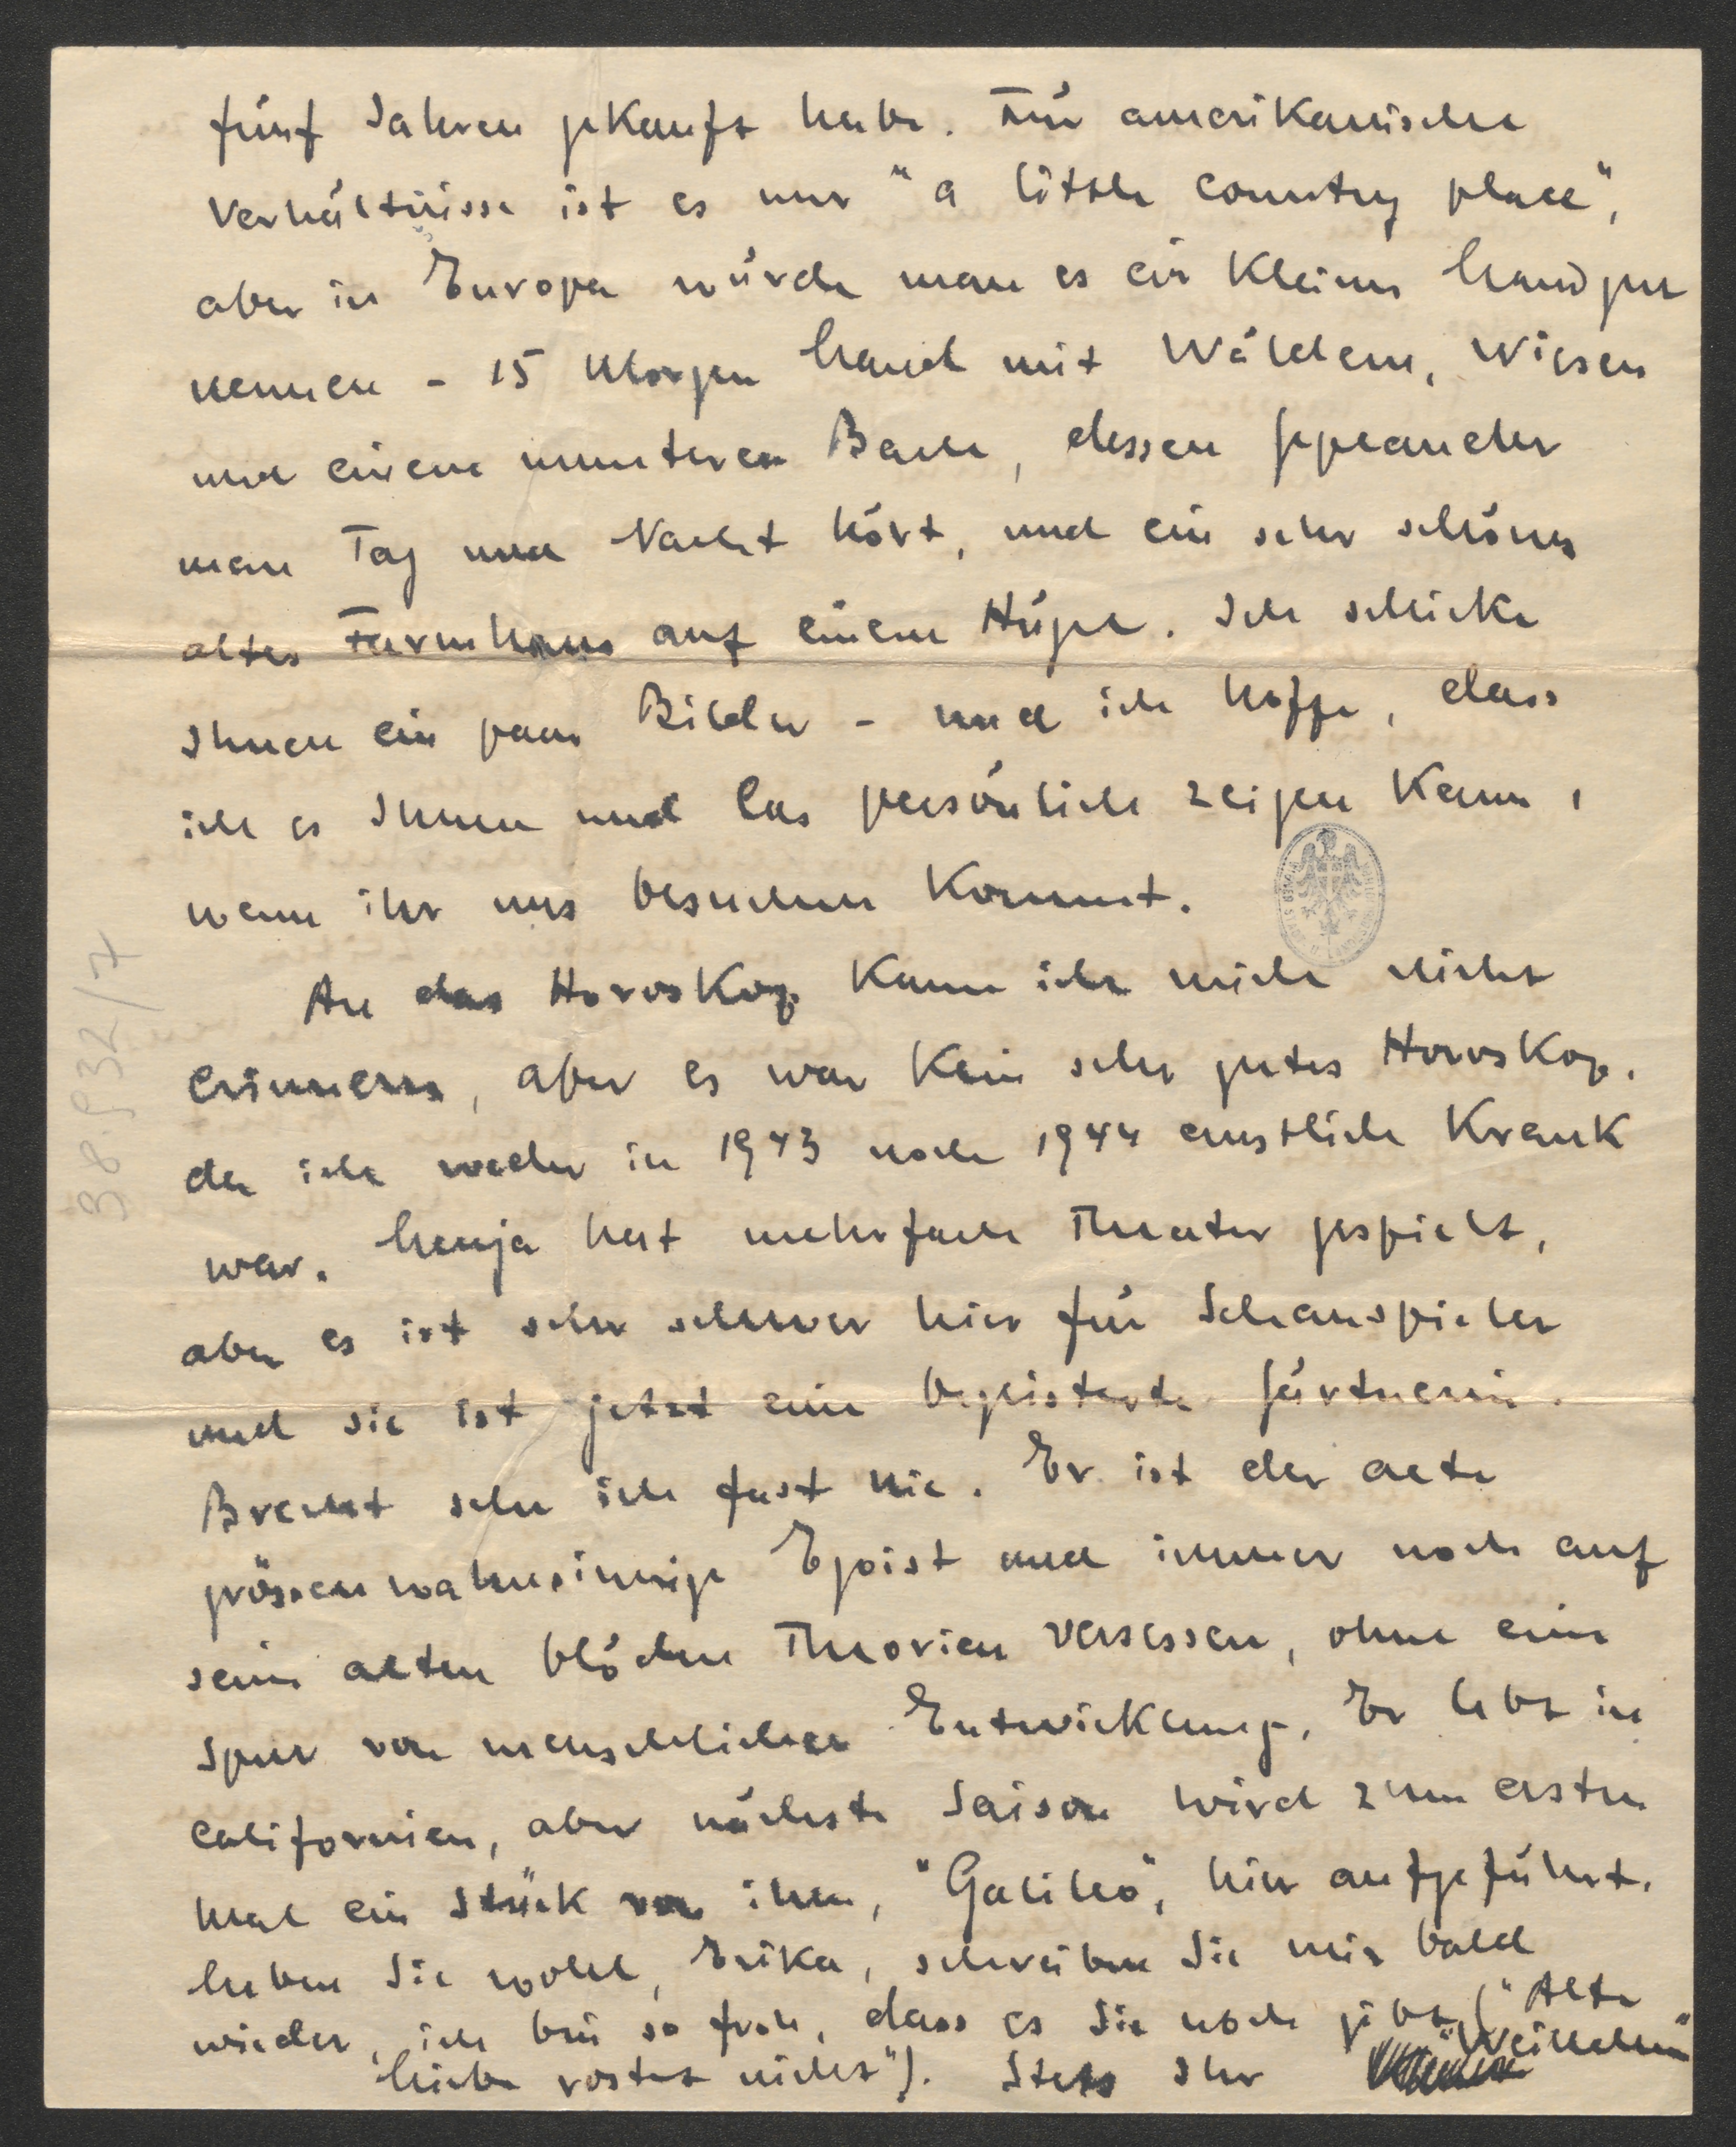 fünf Jahren gekauft habe. Für amerikanische
Verhältnisse ist es nur "a little country place",
aber in Europa würde man es ein kleines Landgut
nennen - 15 Morgen Land mit Wäldern, Wiesen
und einem munteren Bach, dessen Geplauder
man Tag und Nacht hört, und ein sehr schönes
altes Farmhaus auf einem Hügel. Ich schicke
Ihnen ein paar Bilder - und ich hoffe, dass
ich es Ihnen und Cas persönlich zeigen kann,
wenn ihr uns besuchen kommt.
An das Horoskop kann ich mich nicht
erinnern, aber es war kein sehr gutes Horoskop,
da ich weder in 1943 noch 1944 ernstlich krank
war. Lenja hat mehrfach Theater gespielt,
aber es ist sehr schwer hier für Schauspieler
und sie ist jetzt eine begeisterte Gärtnerin.
Brecht sehe ich fast nie. Er ist der alte
grössenwahnsinnige Egoist und immer noch auf
seine alten blöden Theorien versessen, ohne eine
Spur von menschlicher Entwicklung. Er lebt in
Californien, aber nächste Saison wird zum ersten
Mal ein Stück von ihm, "Galileo", hier aufgeführt.
Leben Sie wohl, Erika, schreiben Sie mir bald
wieder, ich bin so froh, dass es Sie noch gibt ("Alte
Liebe rostet nicht"). Stets Ihr "Weillchen"
38.932/7